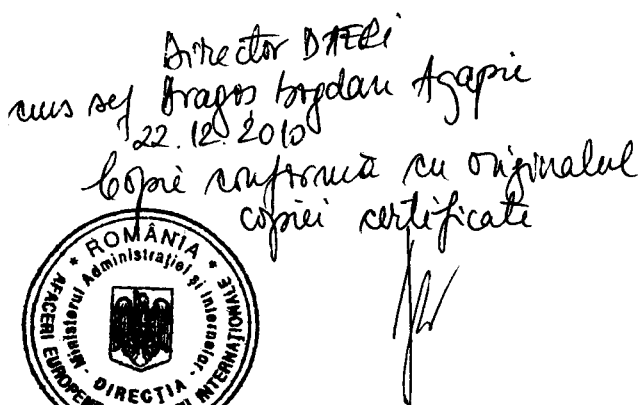 Director DAERI
cms șef Dragoș Bogdan Agapie
22.12.2010
Copie conformă cu originalul
copiei certificate
* ROMÂNIA *
Ministerul Administrației și Internelor
AFACERI EUROPENE
INTERNAȚIONALE
- DIRECȚIA -